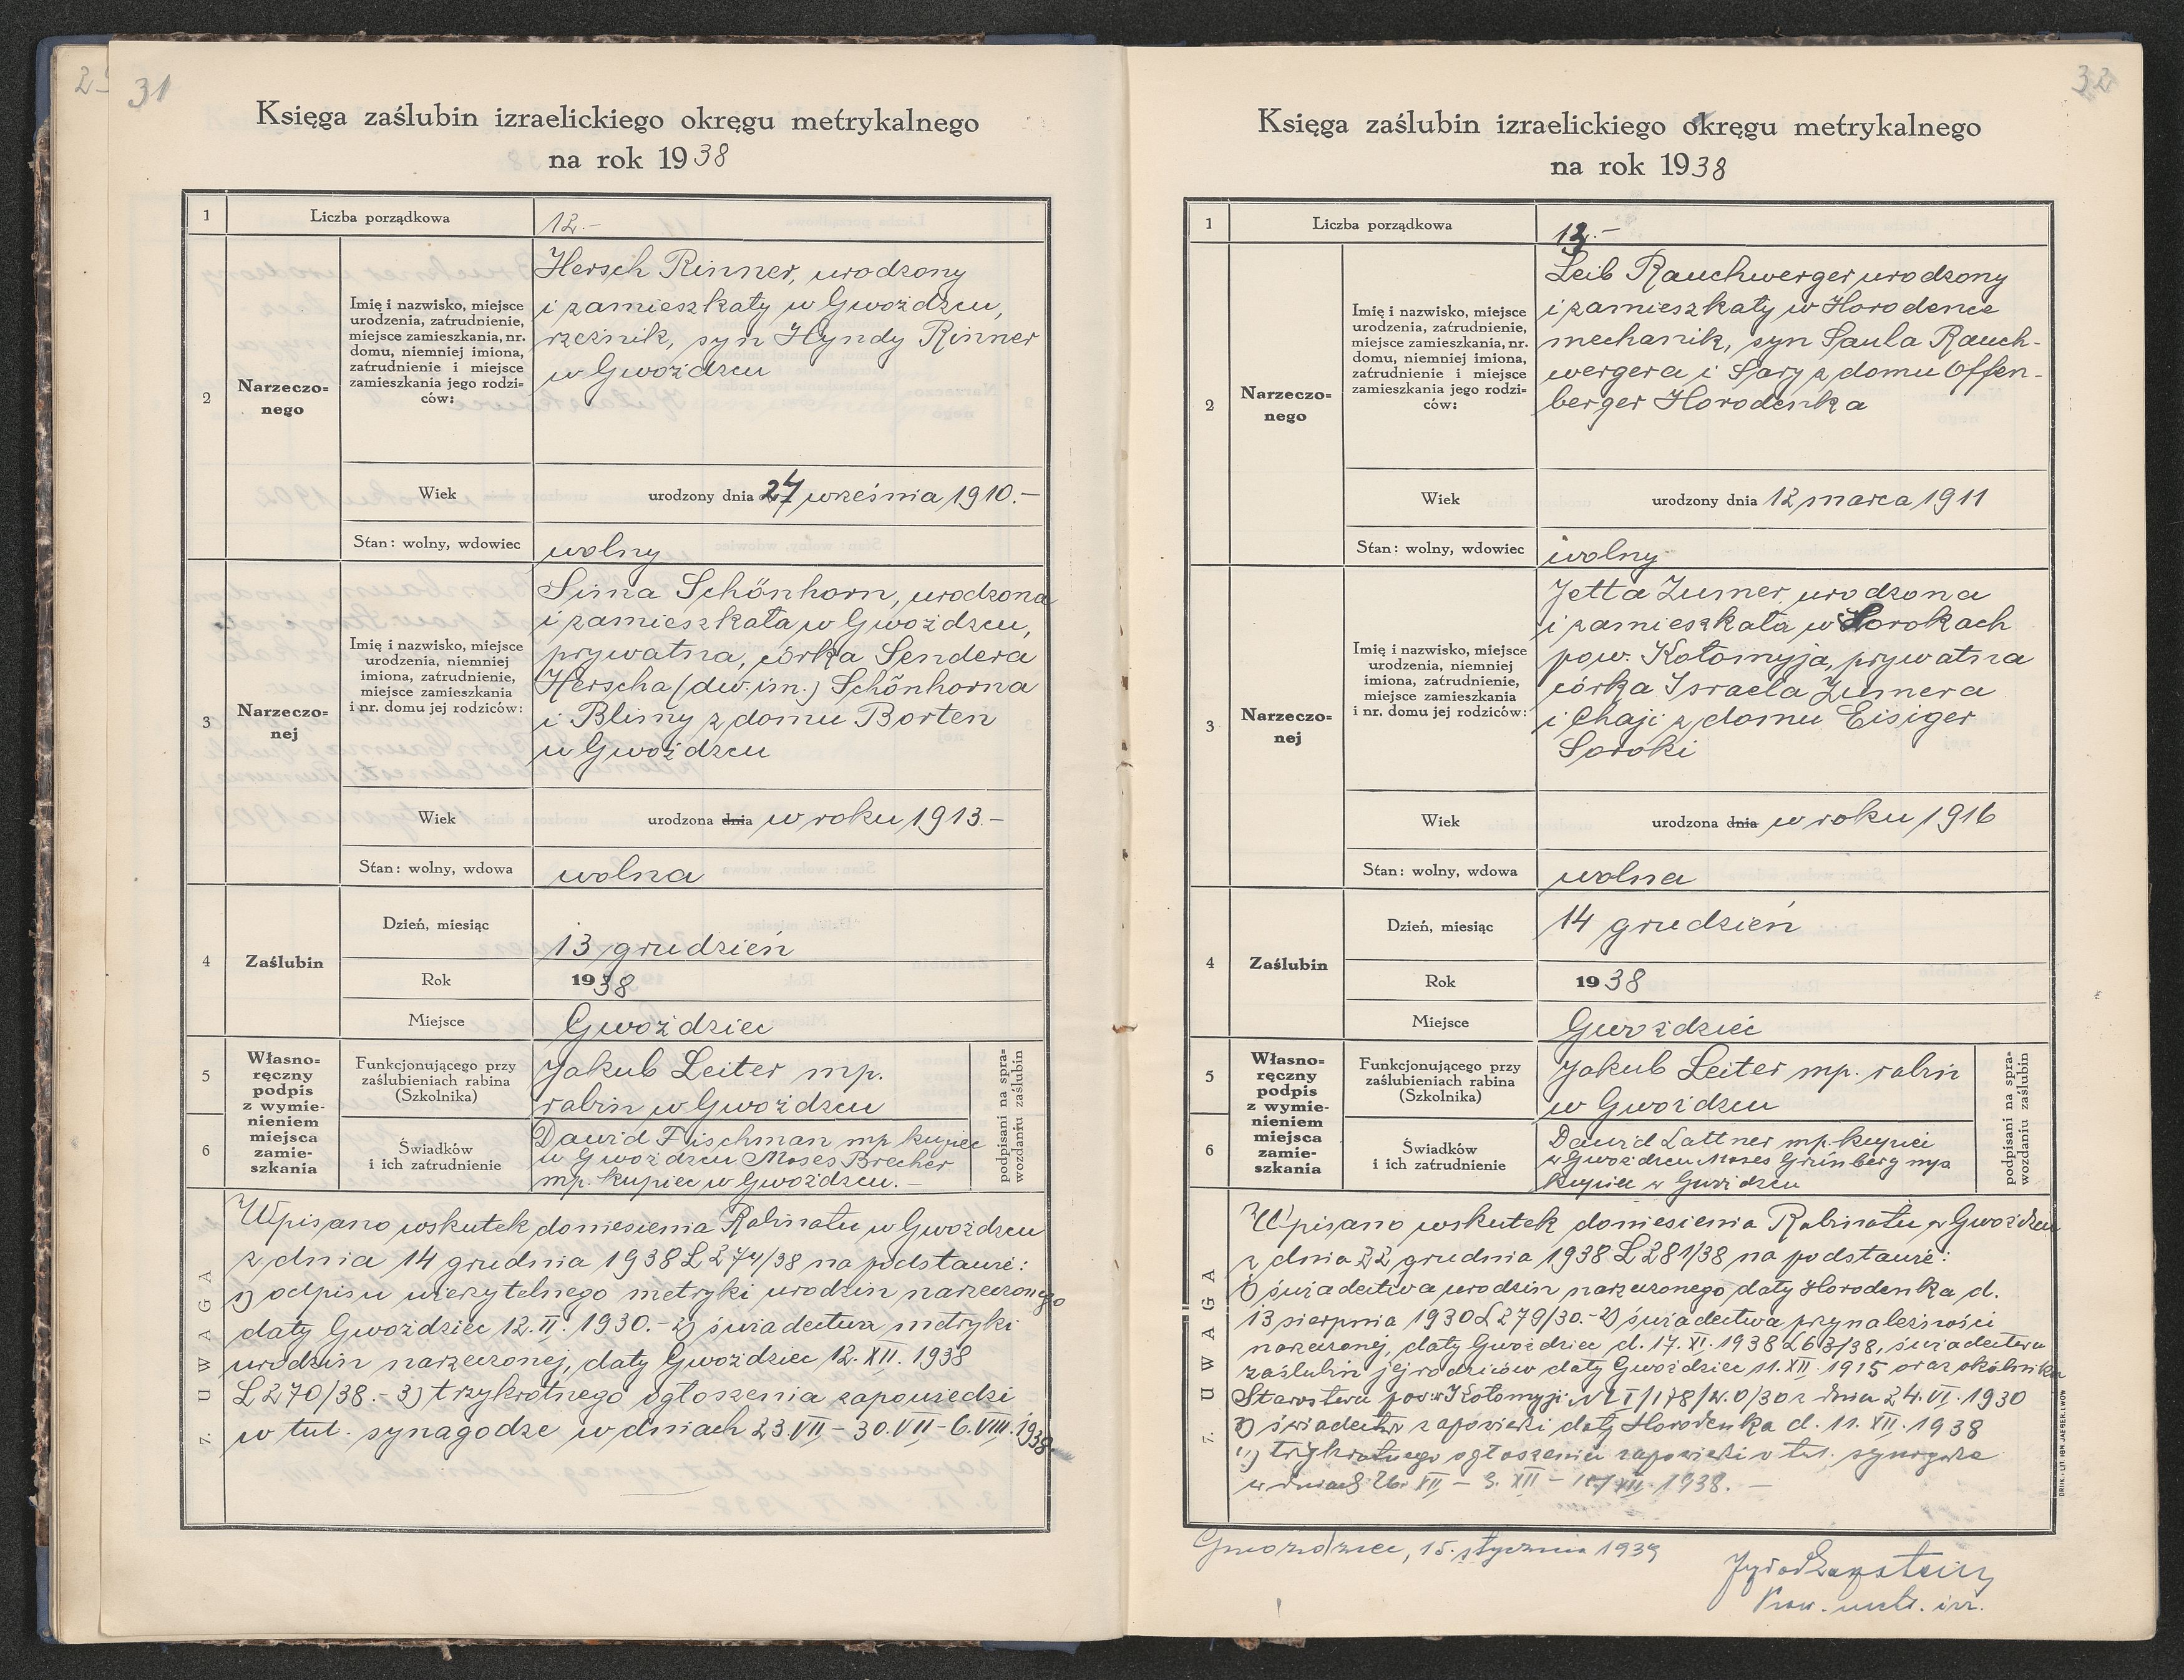 31
Księga zaślubin izraelickiego okręgu metrykalnego
na rok 1938
1 Liczba porządkowa 12.-
2 Narzeczo=
nego
Imię i nazwisko, miejsce
urodzenia, zatrudnienie,
miejsce zamieszkania, nr.
domu, niemniej imiona,
zatrudnienie i miejsce
zamieszkania jego rodzi=
ców:
Hersch Rinner, urodzony
i zamieszkały w Gwoźdzcu,
rzeźnik, syn Hyndy Rinner
w Gwoźdzcu
Wiek urodzony dnia 27 września 1910.-
Stan: wolny, wdowiec wolny
3 Narzeczo=
nej
Imię i nazwisko, miejsce
urodzenia, niemniej
imiona, zatrudnienie,
miejsce zamieszkania
i nr. domu jej rodziców:
Sima Schönhorn, urodzona
i zamieszkała w Gwoźdzcu,
prywatna, córka Sendera
Herscha (dw. im.) Schönhorna
i Blimy z domu Borten
w Gwoźdzcu
Wiek urodzona dnia w roku 1913.-
Stan: wolny, wdowa wolna
4 Zaślubin
Dzień, miesiąc 13 grudzień
Rok 1938
Miejsce Gwoździec
5
6
Własno=
ręczny
podpis
z wymie=
nieniem
miejsca
zamie=
szkania
Funkcjonującego przy
zaślubieniach rabina
(Szkolnika)
Jakub Leiter mp.
rabin w Gwoźdzcu
Świadków
i ich zatrudnienie
Dawid Fischman mp kupiec
w Gwoźdzcu Moses Brecher
mp. kupiec w Gwoźdzcu.-
podpisani na spra=
wozdaniu zaślubin
7. UWAGA
Wpisano wskutek doniesienia Rabinatu w Gwoźdzcu
z dnia 14 grudnia 1938 L 274/38 na podstawie:
1) odpisu wierzytelnego metryki urodzin narzeczonego
daty Gwoździec 12.II.1930.- 2) świadectwa metryki
urodzin narzeczonej, daty Gwoździec 12.XII.1938
L 270/38.- 3) trzykrotnego ogłoszenia zapowiedzi
w tut. synagodze w dniach 23.VII - 30.VII - 6.VIII.1938.
32
Księga zaślubin izraelickiego okręgu metrykalnego
na rok 1938
1 Liczba porządkowa 13.-
2 Narzeczo=
nego
Imię i nazwisko, miejsce
urodzenia, zatrudnienie,
miejsce zamieszkania, nr.
domu, niemniej imiona,
zatrudnienie i miejsce
zamieszkania jego rodzi=
ców:
Leib Rauchwerger urodzony
i zamieszkały w Horodence
mechanik, syn Saula Rauch-
wergera i Sary z domu Offen-
berger Horodenka
Wiek urodzony dnia 12 marca 1911
Stan: wolny, wdowiec wolny
3 Narzeczo=
nej
Imię i nazwisko, miejsce
urodzenia, niemniej
imiona, zatrudnienie,
miejsce zamieszkania
i nr. domu jej rodziców:
Jetta Zumer urodzona
i zamieszkała w Sorokach
pow. Kołomyja, prywatna
córka Israela Zumera
i Chaji z domu Eisiger
Soroki
Wiek urodzona dnia w roku 1916
Stan: wolny, wdowa wolna
4 Zaślubin
Dzień, miesiąc 14 grudzień
Rok 1938
Miejsce Gwoździec
5
6
Własno=
ręczny
podpis
z wymie=
nieniem
miejsca
zamie=
szkania
Funkcjonującego przy
zaślubieniach rabina
(Szkolnika)
Jakub Leiter mp. rabin
w Gwoźdzcu
Świadków
i ich zatrudnienie
Dawid Lattner mp. kupiec
w Gwoźdzcu Moses Grünberg mp
kupiec w Gwoźdzcu
podpisani na spra=
wozdaniu zaślubin
7. UWAGA
Wpisano wskutek doniesienia Rabinatu w Gwoźdzcu
z dnia 22 grudnia 1938 L 281/38 na podstawie:
1) świadectwa urodzin narzeczonego daty Horodenka d.
13 sierpnia 1930 L 279/30.- 2) świadectwa przynależności
narzeczonej, daty Gwoździec d. 17.XI.1938 L 63/38, świadectwa
zaślubin jej rodziców daty Gwoździec 11.XII.1915 oraz okólnika
Starostwa pow. w Kołomyji N L I/178/W.O/30 z dnia 24.VI.1930
3) świadectw zapowiedzi daty Horodenka d. 11.XII.1938
4) trzykrotnego ogłoszenia zapowiedzi w tut. synagodze
w dniach 26.XI - 3.XII - XII.1938. -
DRUK I LIT. IGN. JAEGER, LWÓW
Gwoździec, 15. stycznia 1939